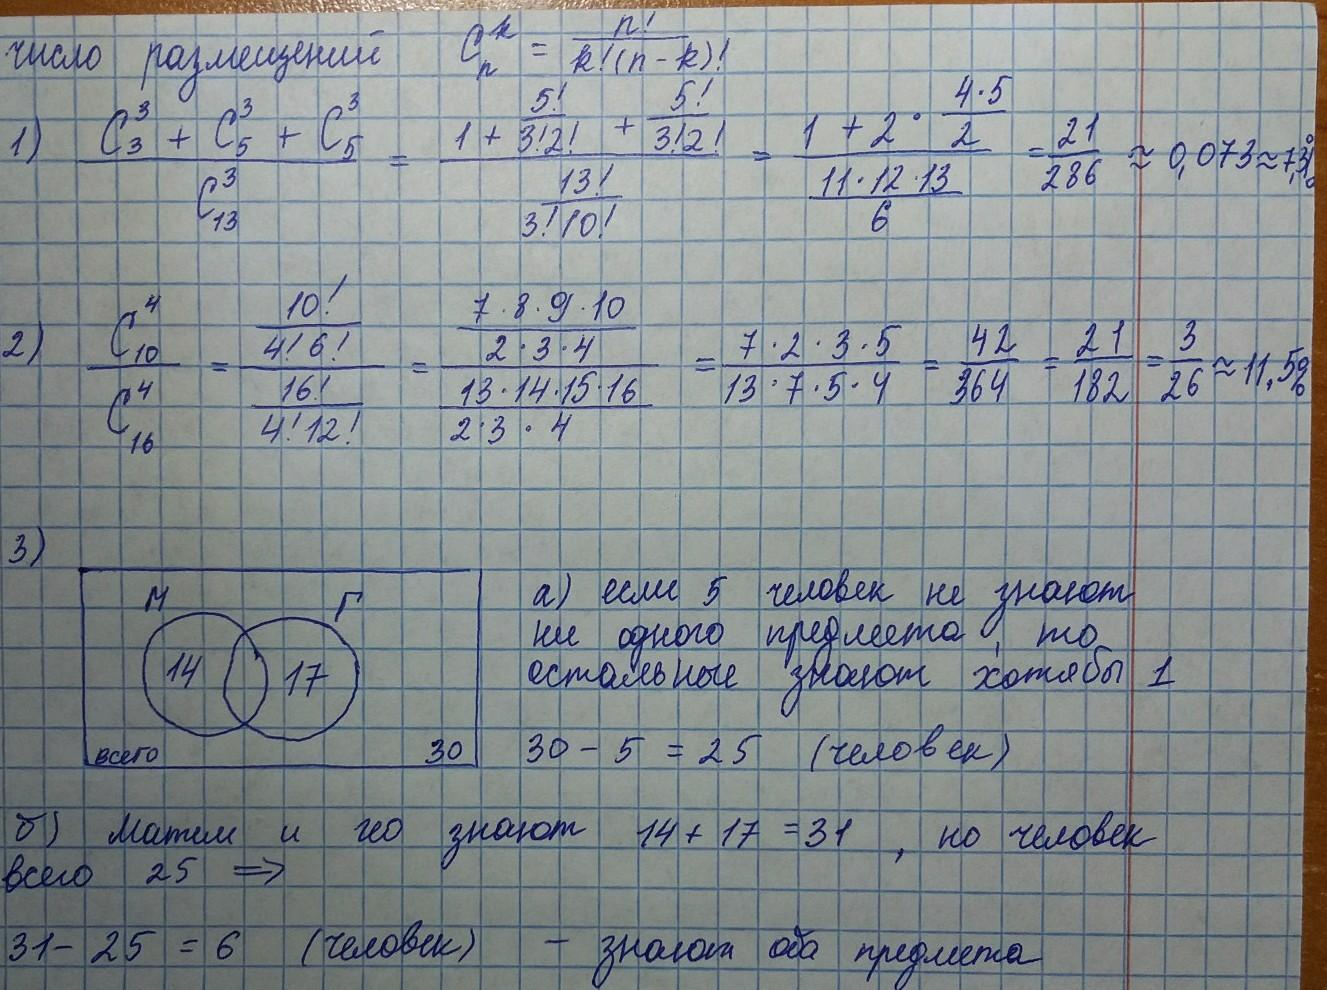 число размещений C_n^k = n! / k!(n-k)!
1) (C_3^3 + C_5^3 + C_5^3) / C_13^3 = (1 + 5!/3!2! + 5!/3!2!) / (13!/3!10!) = (1 + 2 · 4·5/2) / (11·12·13/6) = 21/286 ≈ 0,073 ≈ 7,3%
2) C_10^4 / C_16^4 = (10!/4!6!) / (16!/4!12!) = (7·8·9·10 / 2·3·4) / (13·14·15·16 / 2·3·4) = 7·2·3·5 / 13·7·5·4 = 42/364 = 21/182 = 3/26 ≈ 11,5%
3)
М Г
14 17
всего 30
а) если 5 человек не знают
ни одного предмета, то
остальные знают хотябы 1
30 - 5 = 25 (человек)
б) Матем и гео знают 14 + 17 = 31, но человек
всего 25 =>
31 - 25 = 6 (человек) - знают оба предмета